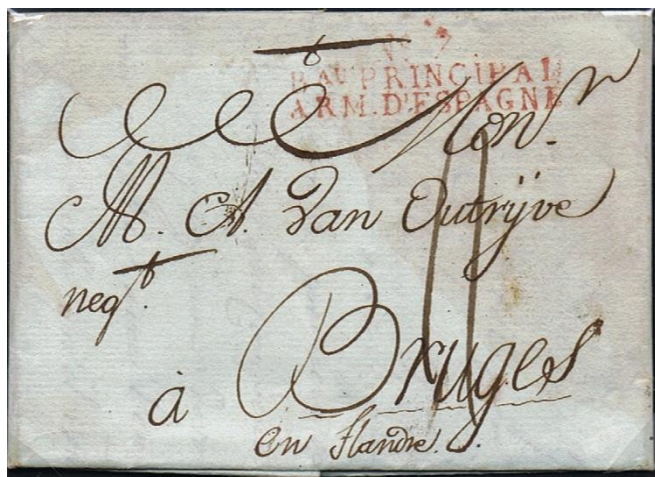 Bau PRINCIPAL
ARM. D'ESPAGNE
Monr
M. A. Van Outrijve
negt.
11
à Bruges
en Flandre.